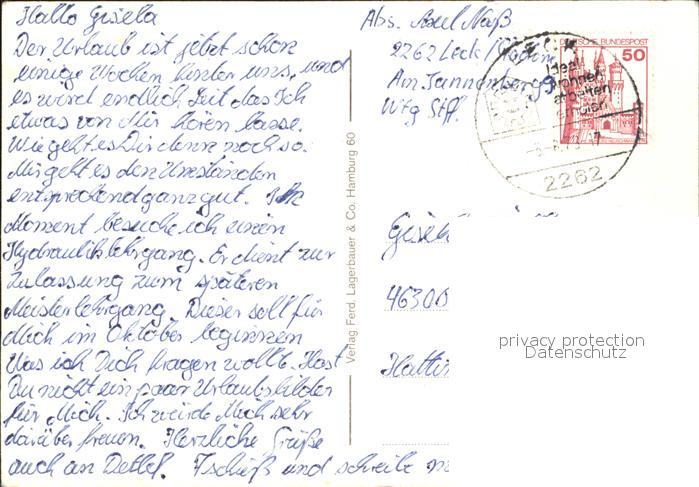 Hallo Gisela
Der Urlaub ist jetzt schon
einige Wochen hinter uns, und
es wird endlich Zeit das Ich
etwas von Mir hören lasse.
Wie geht es Dir denn noch so.
Mir geht es den Umständen
entsprechend ganz gut. Im
Moment besuche ich einen
Hydrauliklehrgang. Er dient zur
Zulassung zum späteren
Meisterlehrgang. Dieser soll für
Mich im Oktober beginnen
Was ich Dich fragen wollte. Hast
Du nicht ein paar Urlaubsbilder
für Mich. Ich würde Mich sehr
darüber freuen. Herzliche Grüße
auch an Detlef. Tschüß und schreibe
Verlag Ferd. Lagerbauer & Co. Hamburg 60
Abs. Axel Naß
2262 Leck
Am Tannenberg 9
Wtg Stff.
DEUTSCHE BUNDESPOST
50
Ideal:
wohnen
arbeiten
erholen
2262
Gisel
4630
Hattin
privacy protection
Datenschutz